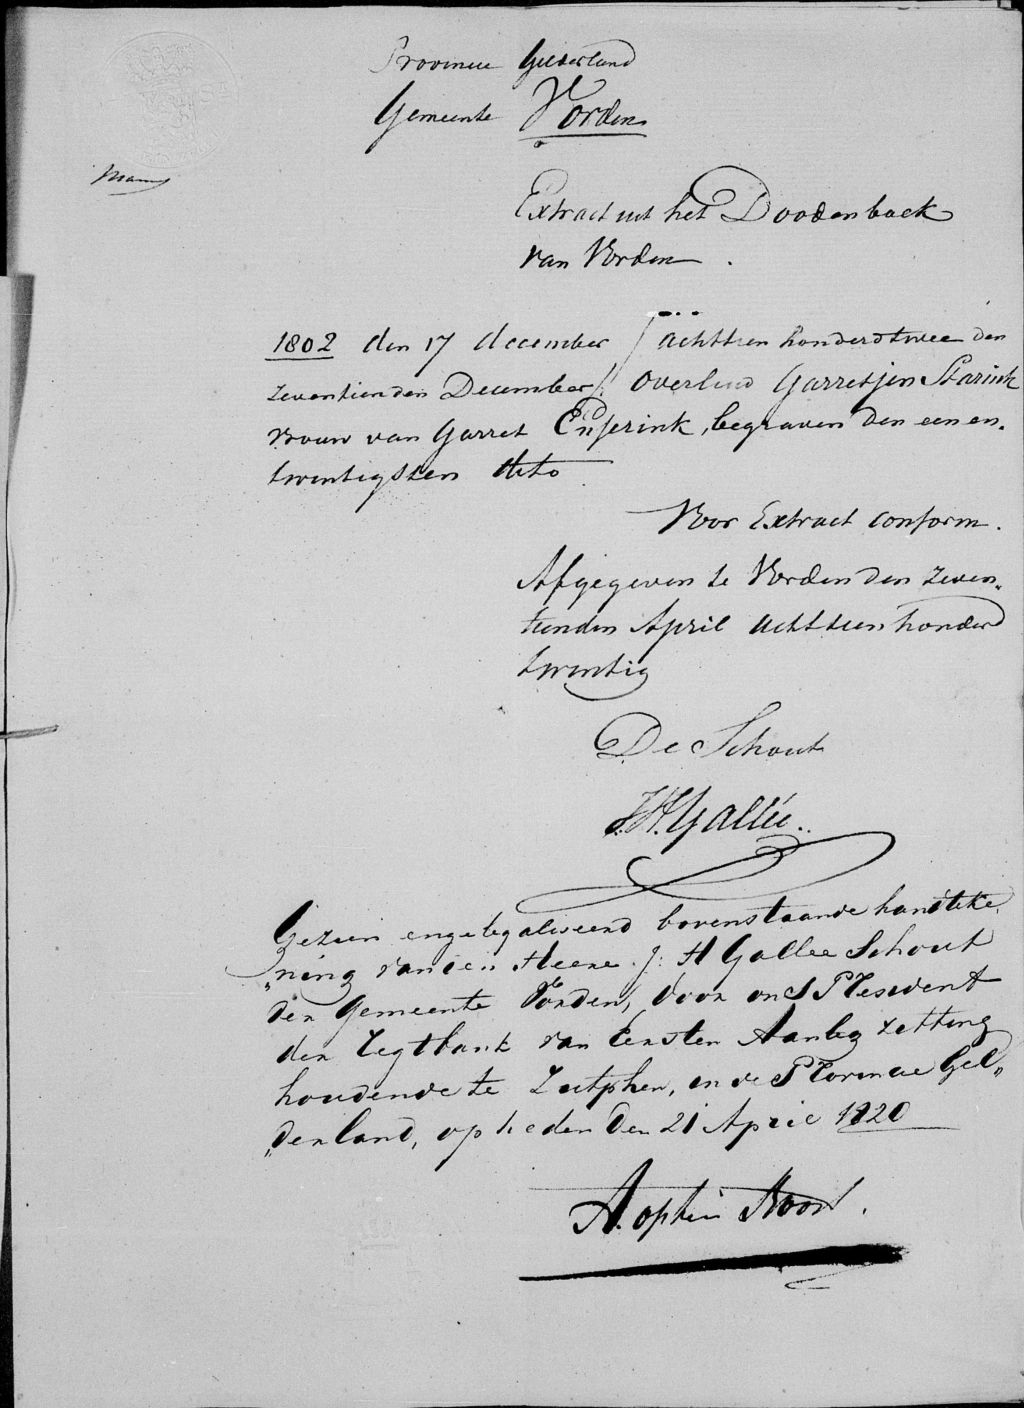 Provincie Gelderland
Gemeente Vorden
Extract uit het Doodenboek
van Vorden.
1802 den 17 december / achttien honderd twee den
zeventienden December /: overleed Garretjen Starink
vrouw van Garret Enserink, begraven den een en
twintigsten dito
Voor Extract conform.
Afgegeven te Vorden den zeven-
tienden April achttien honderd
twintig
De Schout
J.H. Gallée.
Gezien en gelegaliseerd bovenstaande handteke
"ning van den Heere J: H Gallee Schout
der Gemeente Vorden, door ons President
der Regtbank van Eersten Aanleg zitting
houdende te Zutphen, in de Provincie Gel"
"derland, op heden den 21 April 1820
A. op ten Noort.